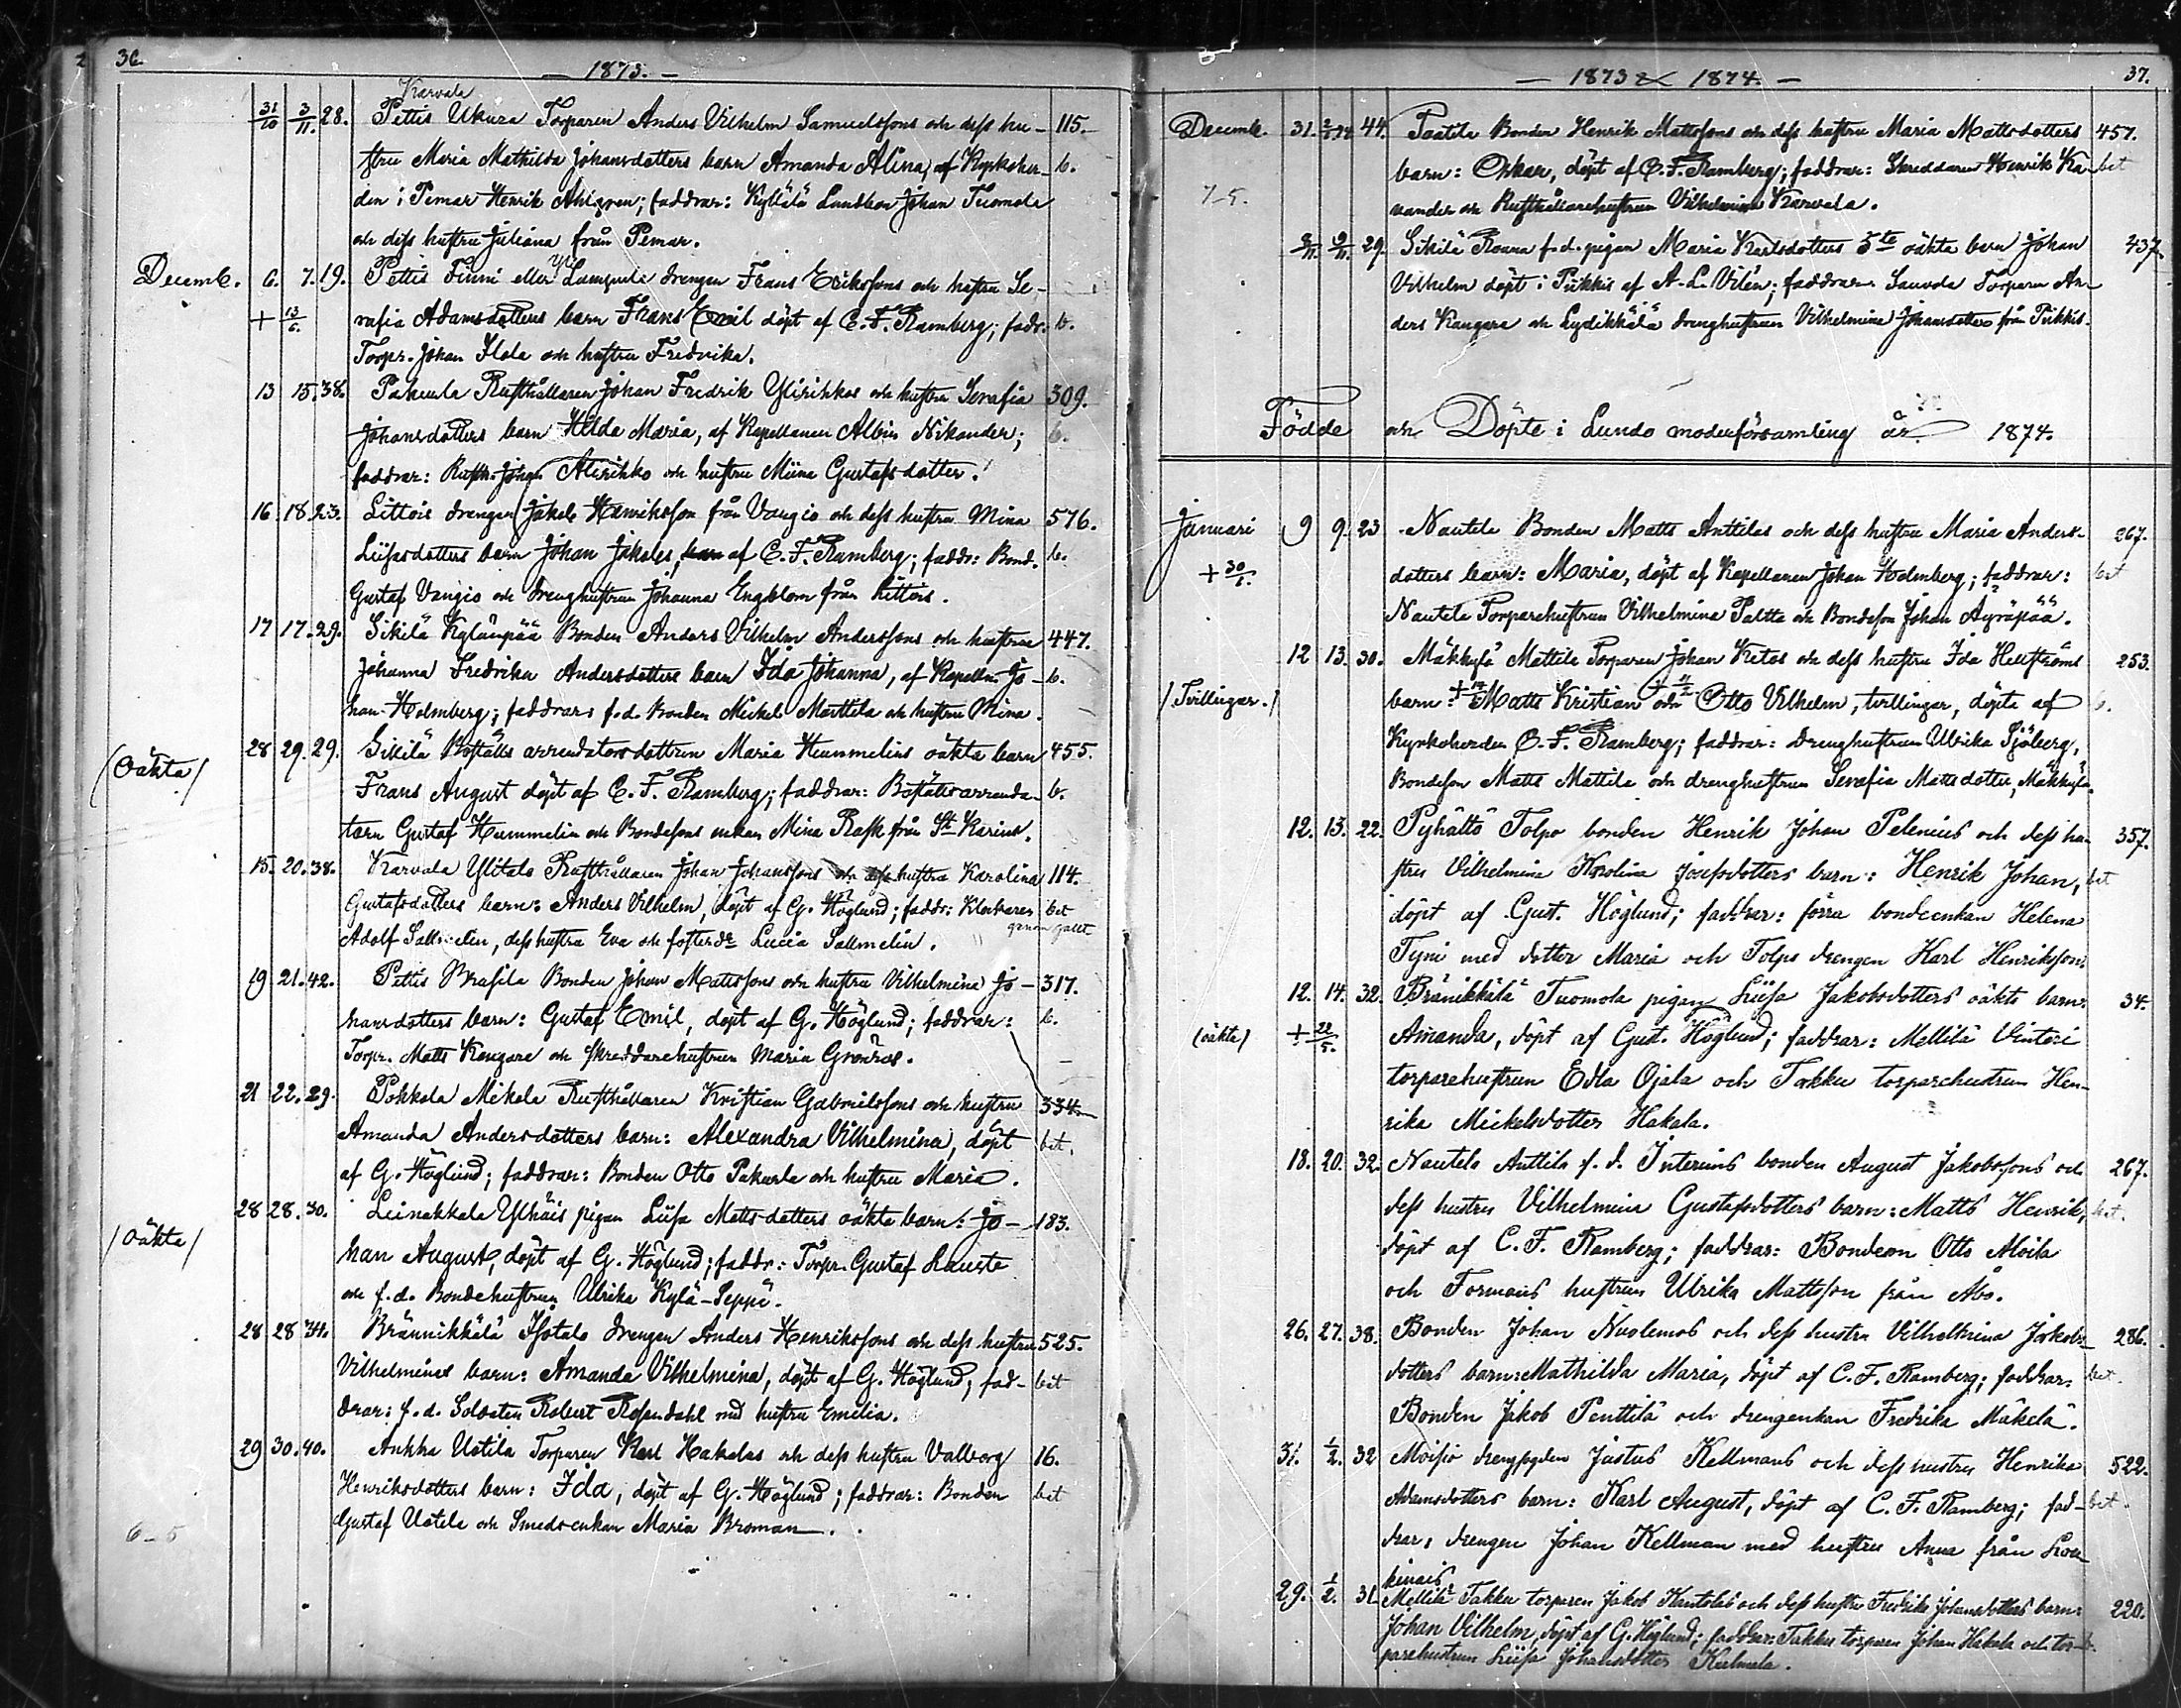 36.
— 1873. —
Karvala
31/10 3/11. 28. Pettis Ukura Torparen Anders Vilhelm Samuelssons och dess hu- 115.
stru Maria Mathilda Johansdotters barn Amanda Alina, af Kyrkoher- b.
den i Pemar Henrik Ahlgren; faddrar: Kyllälä Landbon Johan Tuomola
och dess hustru Juliana från Pemar.
Decemb. 6. 7. 19. Pettis Finni eller Yli Lamsula drengen Frans Erikssons och hustru Se-
+ 13/6. rafia Adamsdotters barn Frans Emil döpt af C. F. Ramberg; fadr. b.
Torpr. Johan Ilola och hustru Fredrika.
13 15. 38. Pakurla Rusthållaren Johan Fredrik Ylirihkos och hustru Serafia 309.
Johansdotters barn Hilda Maria, af Kapellanen Albin Nikander; b.
faddrar: Rusth. Johan Alirihko och hustru Miina Gustafsdotter.
16. 18. 23. Littois drengen Jakob Henriksson från Vangio och dess hustru Mina 576.
Liisasdotters barn Johan Jakobs, af C. F. Ramberg; faddr: Bond. b.
Gustaf Vangio och drenghustrun Johanna Engblom från Littois.
17 17. 29. Sikilä Kylänpää Bonden Anders Vilhelm Anderssons och hustrun 447.
Johanna Fredrika Andersdotters barn Ida Johanna, af Kapelln Jo- b.
han Holmberg; faddrar: f.d. Bonden Mickel Marttela och hustru Mina.
(Oäkta) 28 29. 29. Sikilä Boställs arrendators dottren Maria Hummelins oäkta barn 455.
Frans August döpt af C. F. Ramberg; faddrar: Boställsarrenda- b.
torn Gustaf Hummelin och Bondesons enkan Mina Rask från St Karins.
15. 20. 38. Karvala Ylitalo Rusthållaren Johan Johanssons och dess hustru Karolina 114.
Gustafsdotters barn: Anders Vilhelm, döpt af G. Höglund; faddr: Klockaren bet
Adolf Sallmelin, dess hustru Eva och fosterdr Lucia Sallmelin.
19 21. 42. Pettis Brusila Bonden Johan Mattssons och hustru Vilhelmina Jo- 317.
hansdotters barn: Gustaf Emil, döpt af G. Höglund; faddrar: b.
Torpr. Matts Kangare och skreddarehustrun Maria Grönroos.
21 22. 29. Pokkola Mikola Rusthållaren Kristian Gabrielssons och hustru 334.
Amanda Andersdotters barn: Alexandra Vilhelmina, döpt bet.
af G. Höglund; faddrar: Bonden Otto Pakurla och hustru Maria.
(Oäkta) 28 28. 30. Leinakkala Ylhäis pigan Liisa Mattsdotters oäkta barn: Jo- 183.
han August, döpt af G. Höglund; faddr: Torpr. Gustaf Lauste
och f.d. Bondehustrun Ulrika Kylä-Seppä.
28 28 34. Brännikkälä Isotalo drengen Anders Henrikssons och dess hustru 525.
Vilhelminas barn: Amanda Vilhelmina, döpt af G. Höglund, fad- bet
drar: f.d. Soldaten Robert Rosendahl med hustru Emelia.
29 30. 40. Ankka Uotila Torparen Karl Hakalas och dess hustru Valborg 16.
Henriksdotters barn: Ida, döpt af G. Höglund; faddrar: Bonden bet
Gustaf Uotila och Smedsenkan Maria Broman.
6-5
37.
— 1873 & 1874. —
Decemb. 31. 2/1 74 44. Paatila Bonden Henrik Mattssons och dess hustru Maria Mattsdotters 457.
barn: Oskar, döpt af C. F. Ramberg; faddrar: Skreddaren Henrik Ka- bet
7-5. vander och Rusthållarehustrun Vilhelmina Karvala.
2/11. 9/11. 29. Sikilä Roona f.d. pigan Maria Karlsdotters 5te oäkta barn Johan 437.
Vilhelm döpt i Pikkis af A. L. Vilén; faddrar: Sauvola Torparen An-
ders Kangare och Lydikkälä drenghustrun Vilhelmina Johansdotter från Pikkis.
Födde och Döpte i Lundo moderförsamling år 1874.
Januari 9 9. 23 Nautela Bonden Matts Anttilas och dess hustru Maria Anders- 267.
+ 30/6. dotters barn: Maria, döpt af Kapellanen Johan Holmberg; faddrar: bet
Nautela Torparehustrun Vilhelmina Paltta och Bondeson Johan Äyräpää.
12 13. 30. Mäkkylä Mattila Torparen Johan Ketos och dess hustru Ida Hellströms 253.
(Tvillingar.) barn: Matts Kristian och Otto Vilhelm, tvillingar, döpta af b.
Kyrkoherden C. F. Ramberg; faddrar: drenghustrun Ulrika Sjöberg,
Bondeson Matts Mattila och drenghustrun Serafia Mattsdotter, Mäkkylä.
12. 13. 22. Pyhältö Tolpo bonden Henrik Johan Pelenius och dess hu- 357.
stru Vilhelmina Karolina Josefsdotters barn: Henrik Johan, bet
döpt af Gust. Höglund; faddrar: förra bondeenkan Helena
Tyni med dotter Maria och Tolpo drengen Karl Henriksson.
12. 14. 32. Bränikkälä Tuomola pigan Liisa Jakobsdotters oäkta barn: 34.
(oäkta) + 22/5. Amanda, döpt af Gust. Höglund; faddrar: Mellilä Vintäri
torparehustrun Edla Ojala och Takku torparehustrun Hen-
rika Mickelsdotter Hakala.
18. 20. 32. Nautela Anttila f.d. Interims bonden August Jakobssons och 267.
dess hustru Vilhelmina Gustafsdotters barn: Matts Henrik, bet.
döpt af C. F. Ramberg; faddrar: Bonden Otto Moila
och Formans hustrun Ulrika Mattsson från Åbo.
26. 27. 38. Bonden Johan Nuolemos och dess hustru Vilhelmina Jakobs- 286.
dotters barn: Mathilda Maria, döpt af C. F. Ramberg; faddrar: bet.
Bonden Jakob Penttilä och drengenkan Fredrika Mäkelä.
31. 1/2. 32 Moisio drengen Justus Kellmans och dess hustru Henrika 522.
Adamsdotters barn: Karl August, döpt af C. F. Ramberg; fad- bet.
drar: drengen Johan Kellman med hustru Anna från Lou-
kinais
29. 1/2. 31 Mellilä Takku torparen Jakob Kantolas och dess hustru Fredrika Johansdotters barn: 220.
Johan Vilhelm, döpt af G. Höglund; faddrar: Takku torparen Johan Hakala och tor- b.
parehustrun Liisa Johansdotter Kulmala.